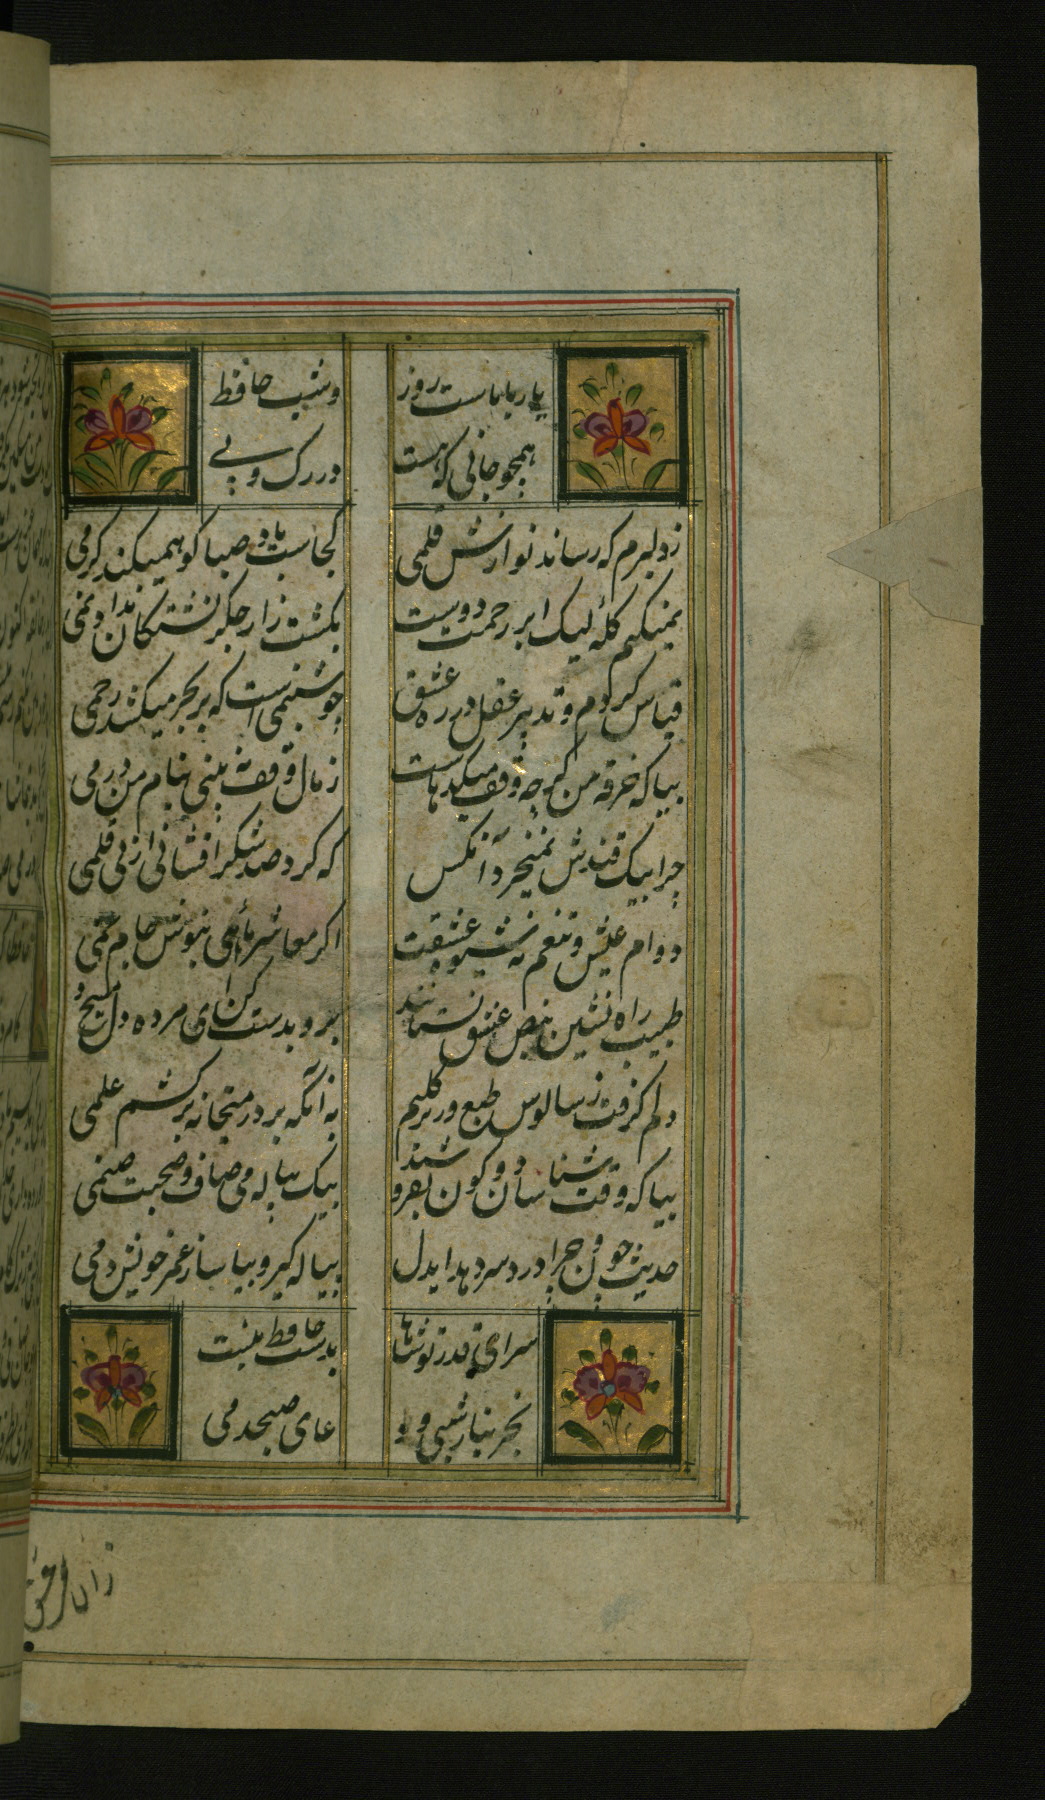 یار با ماست روز و شب حافظ
همچو جانی که هست در رک و پی
ز دلبرم که رساند نوازش قلمی کجاست باد صبا کو همیکند کرمی
نمیکنم کله لیک ابر رحمت دوست بکشت زار جکر تشنکان نداد نمی
قیاس کردم و تدبیر عقل در ره عشق چو شبنمی است که بر بحر میکشد رقمی
بیا که خرقه من کرچه وقف میکدهاست ز مال وقف نه بینی بنام من درمی
چرا بیک قندش نمیخرد آنکس که کرد صد شکر افشانی از نی قلمی
دوام عیش و تنعم نه شیوه عشقت اکر معاشر مائی بنوش جام غمی
طبیب راه نشین نبض عشق نشناسد برو بدست کن ای مرده دل مسیح دمی
دلم کرفت ز سالوس و طبل زیر کلیم به آنکه بر در میخانه برکشم علمی
بیا که وقت شناسان دو کون بفروشند بیک پیاله می صاف و صحبت صنمی
حدیث چون و چرا درد سر دهد ایدل پیاله کیر و بیاسا ز عمر خویش دمی
سزای قدر تو شاها بدست حافظ نیست
بجز نیاز شبی و دعای صبحدمی